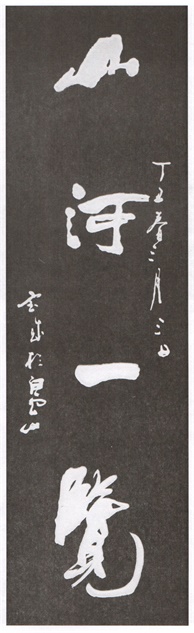 丁丑春三月三日
山河一覽
成於白雲山